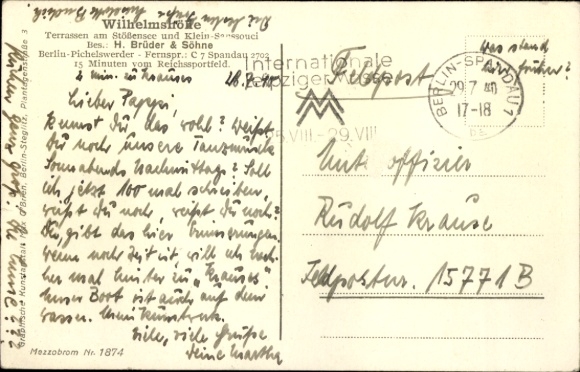 Wilhelmshöhe
Terrassen am Stößensee und Klein-Sanssouci
Bes.: H. Brüder & Söhne
Berlin-Pichelswerder - Fernspr.: C 7 Spandau 2702
15 Minuten vom Reichssportfeld.
2 min. zu Krauses 28.7.40
Lieber Pappi,
kennst du das wohl? Weißt
du noch unsere Tanzmusik
Sonnabends Nachmittags? Soll
ich jetzt 100 mal schreiben,
weißt du noch, weißt du noch?
Du, gibt das hier Erinnerungen.
Wenn noch Zeit ist, will ich
mal hinter zu „Krauses“
Unser Boot ist auch auf dem
Wasser.
Viele, viele Grüße
deine Martha
Mezzobrom Nr. 1874
Graphische Kunstanstalt Berlin-Steglitz, Plantagenstraße 3
Internationale
Leipziger Messe
25.VIII.-29.VIII.
Feldpost
Was stand
hier früher?
BERLIN-SPANDAU 1
29.7.40
17-18
Unteroffizier
Rudolf Krause
Feldpostnr. 15771 B